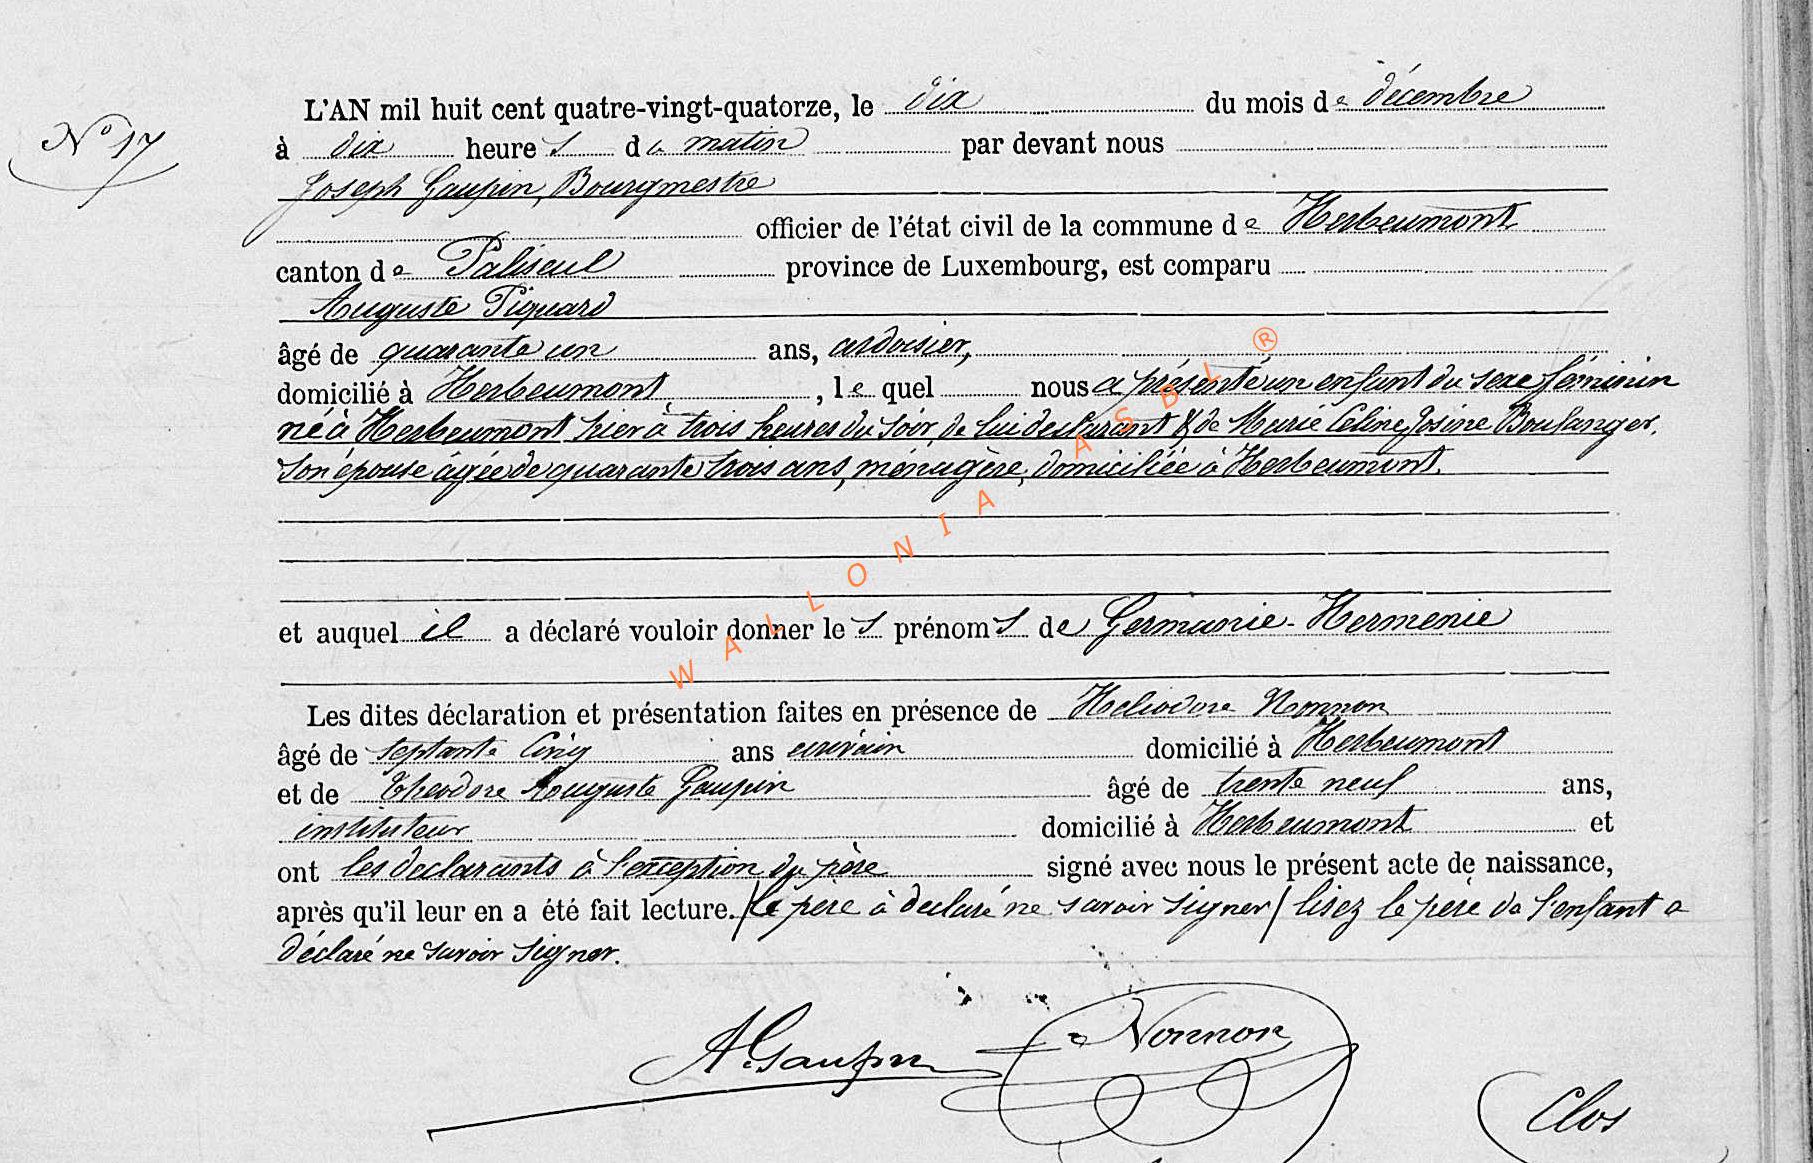 N° 17
L'AN mil huit cent quatre-vingt-quatorze, le dix du mois de décembre
à dix heures du matin par devant nous
Joseph Gaupin, Bourgmestre
officier de l'état civil de la commune de Herbeumont
canton de Paliseul province de Luxembourg, est comparu
Auguste Piquard
âgé de quarante un ans, ardoisier,
domicilié à Herbeumont, lequel nous a présenté un enfant du sexe féminin
né à Herbeumont hier à trois heures du soir, de lui déclarant & de Marie Celine Josine Boulanger,
son épouse âgée de quarante trois ans, ménagère, domiciliée à Herbeumont.
et auquel il a déclaré vouloir donner les prénoms de Germanie-Hermenie
Les dites déclaration et présentation faites en présence de Heliodore Nonnon
âgé de septante cinq ans domicilié à Herbeumont
et de Theodore Auguste Gaupin âgé de trente neuf ans,
instituteur domicilié à Herbeumont et
ont les declarants à l'exception du père signé avec nous le présent acte de naissance,
après qu'il leur en a été fait lecture. / le père à declaré ne savoir signer / lisez le père de l'enfant a
déclaré ne savoir signer.
A. Gaupin Nonnon
Clos
WALLONIA ASBL ®